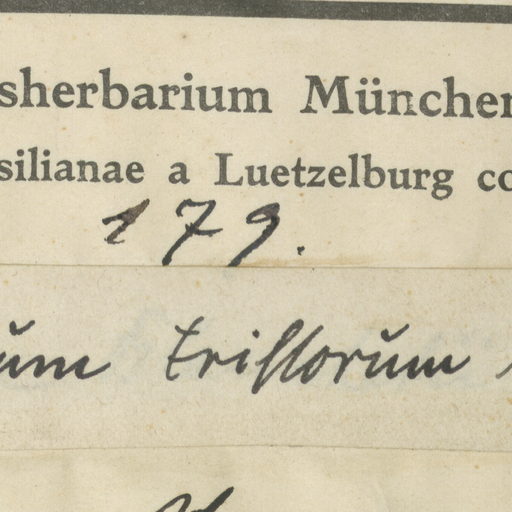 sherbarium München
silianae a Luetzelburg co
179.
um triflorum